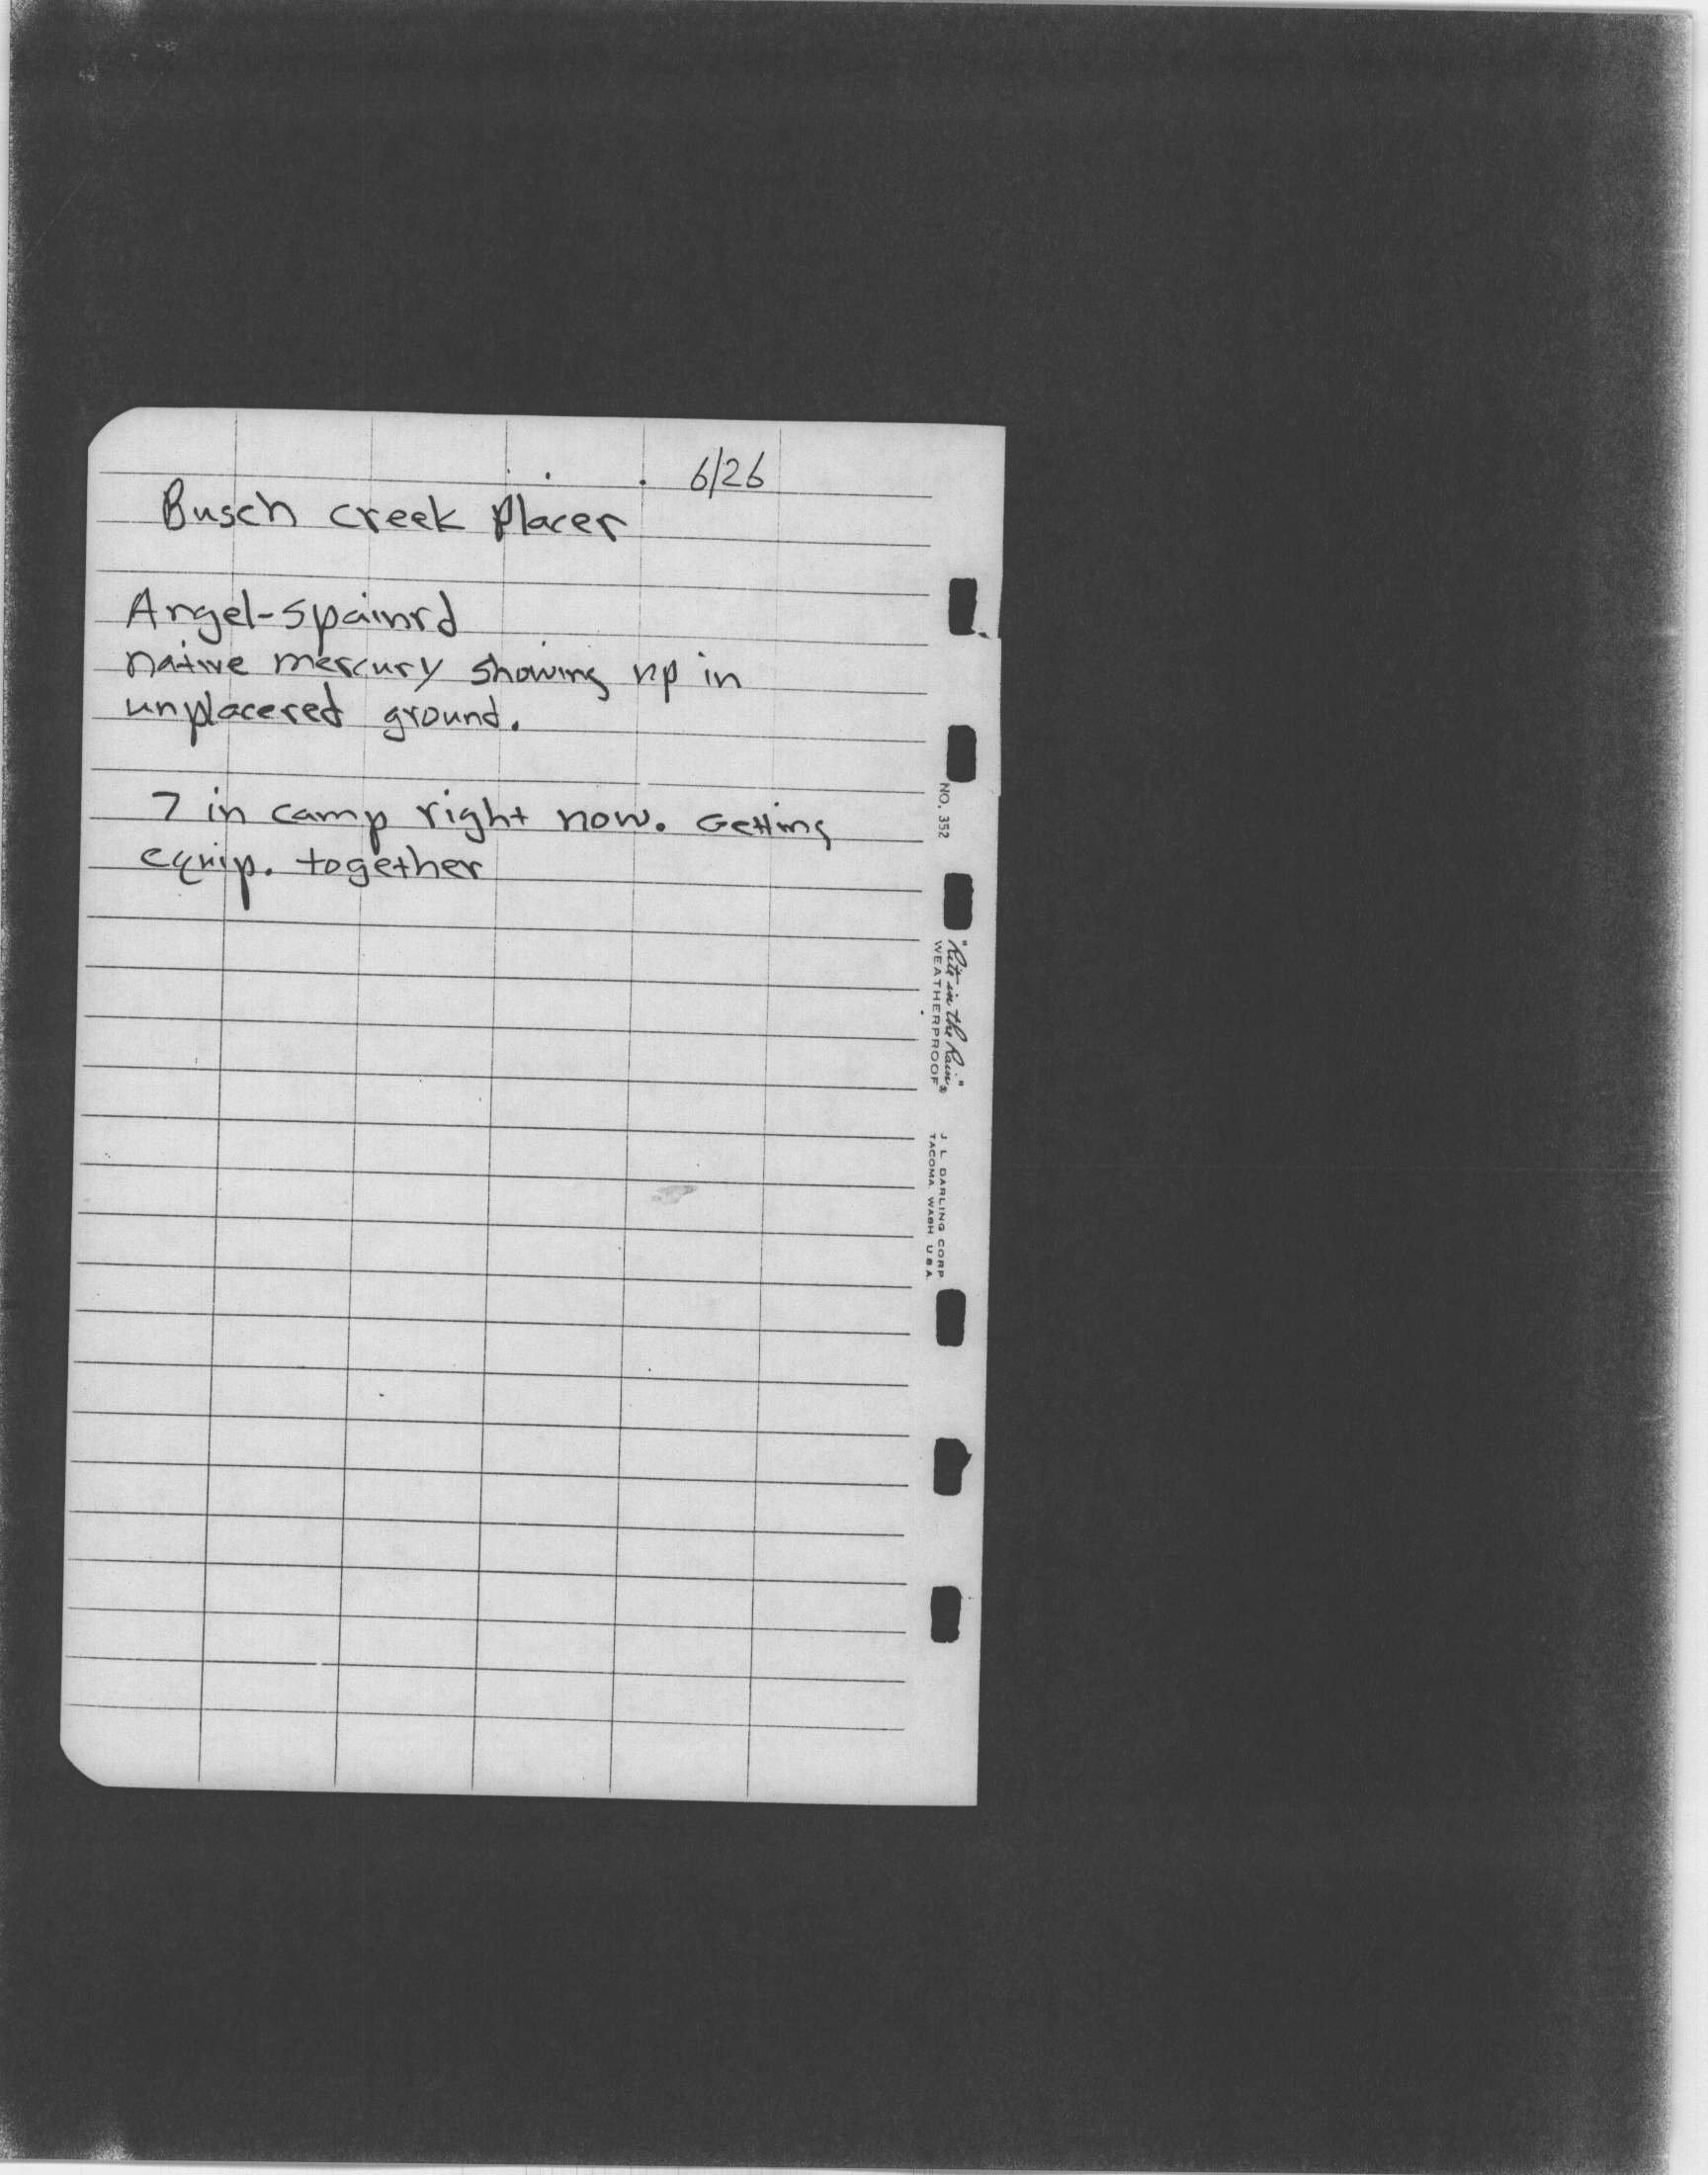 6/26
Busch Creek Placer
Angel-Spainrd
native mercury showing up in
unplacered ground.
7 in camp right now. Getting
equip. together
NO. 352
"Rite in the Rain"®
WEATHERPROOF
J. L. DARLING CORP
TACOMA WASH U.S.A.